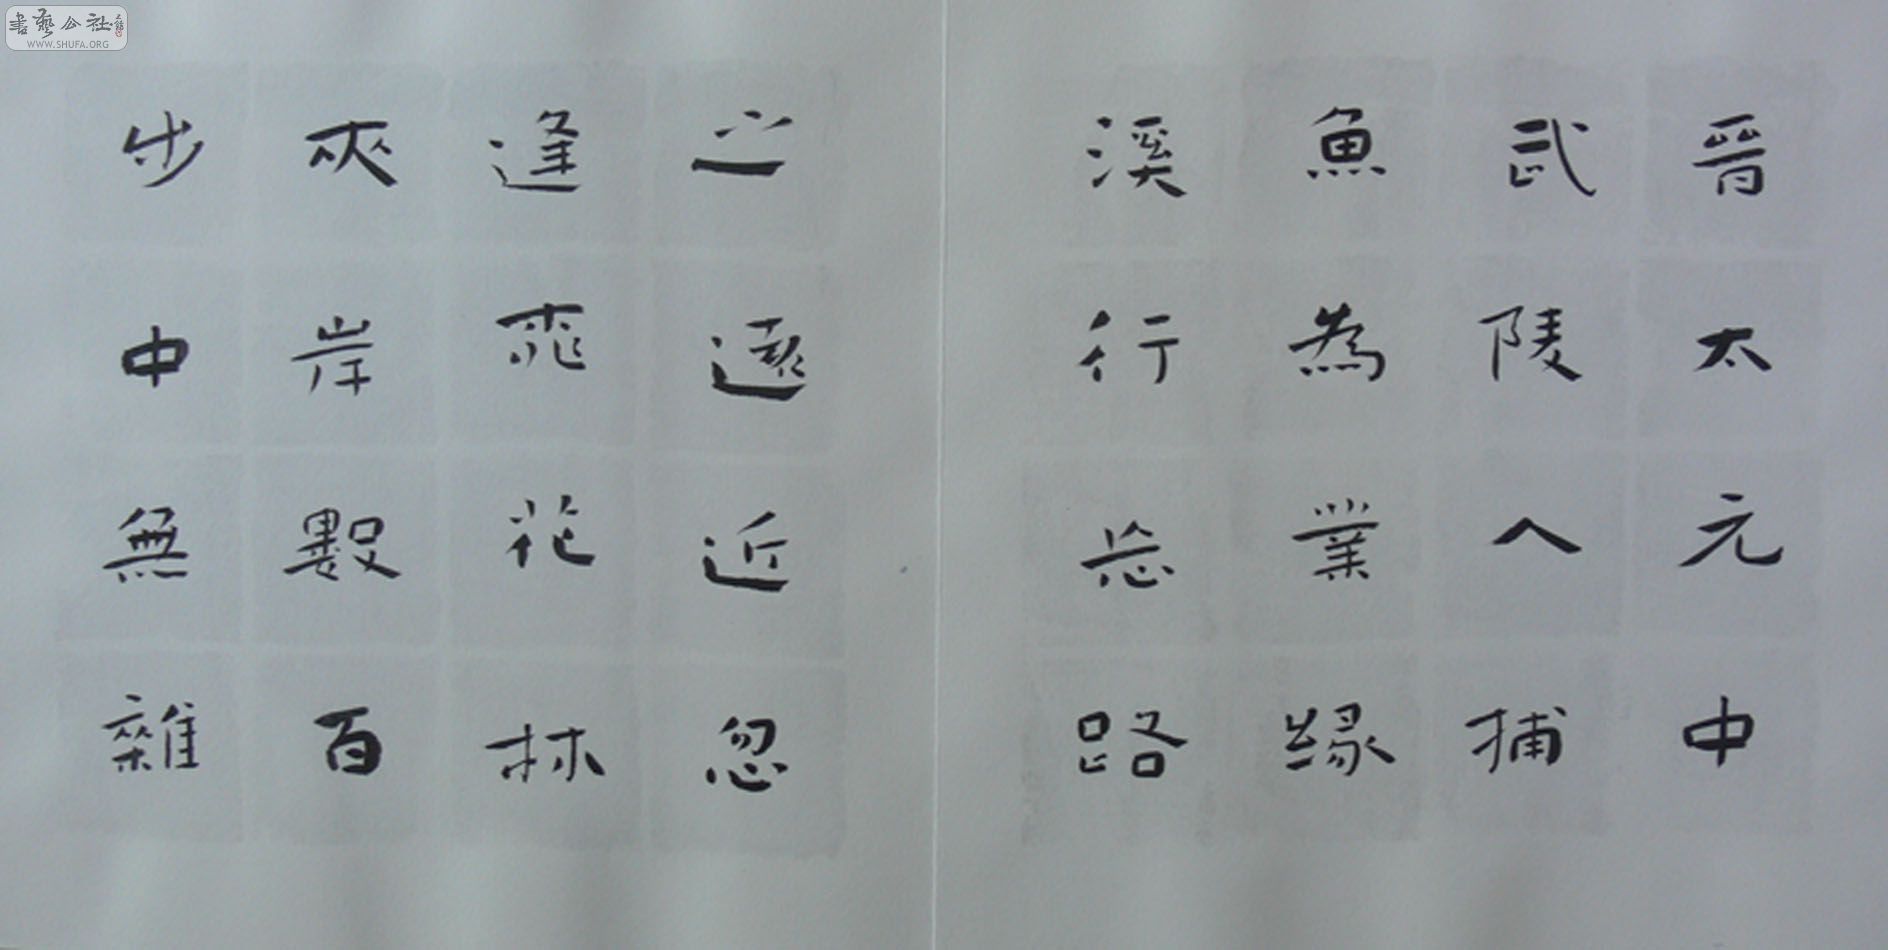 晉太元中
武陵人捕
魚為業緣
溪行忘路
之遠近忽
逢桃花林
夾岸數百
步中無雜
書藝公社
WWW.SHUFA.ORG